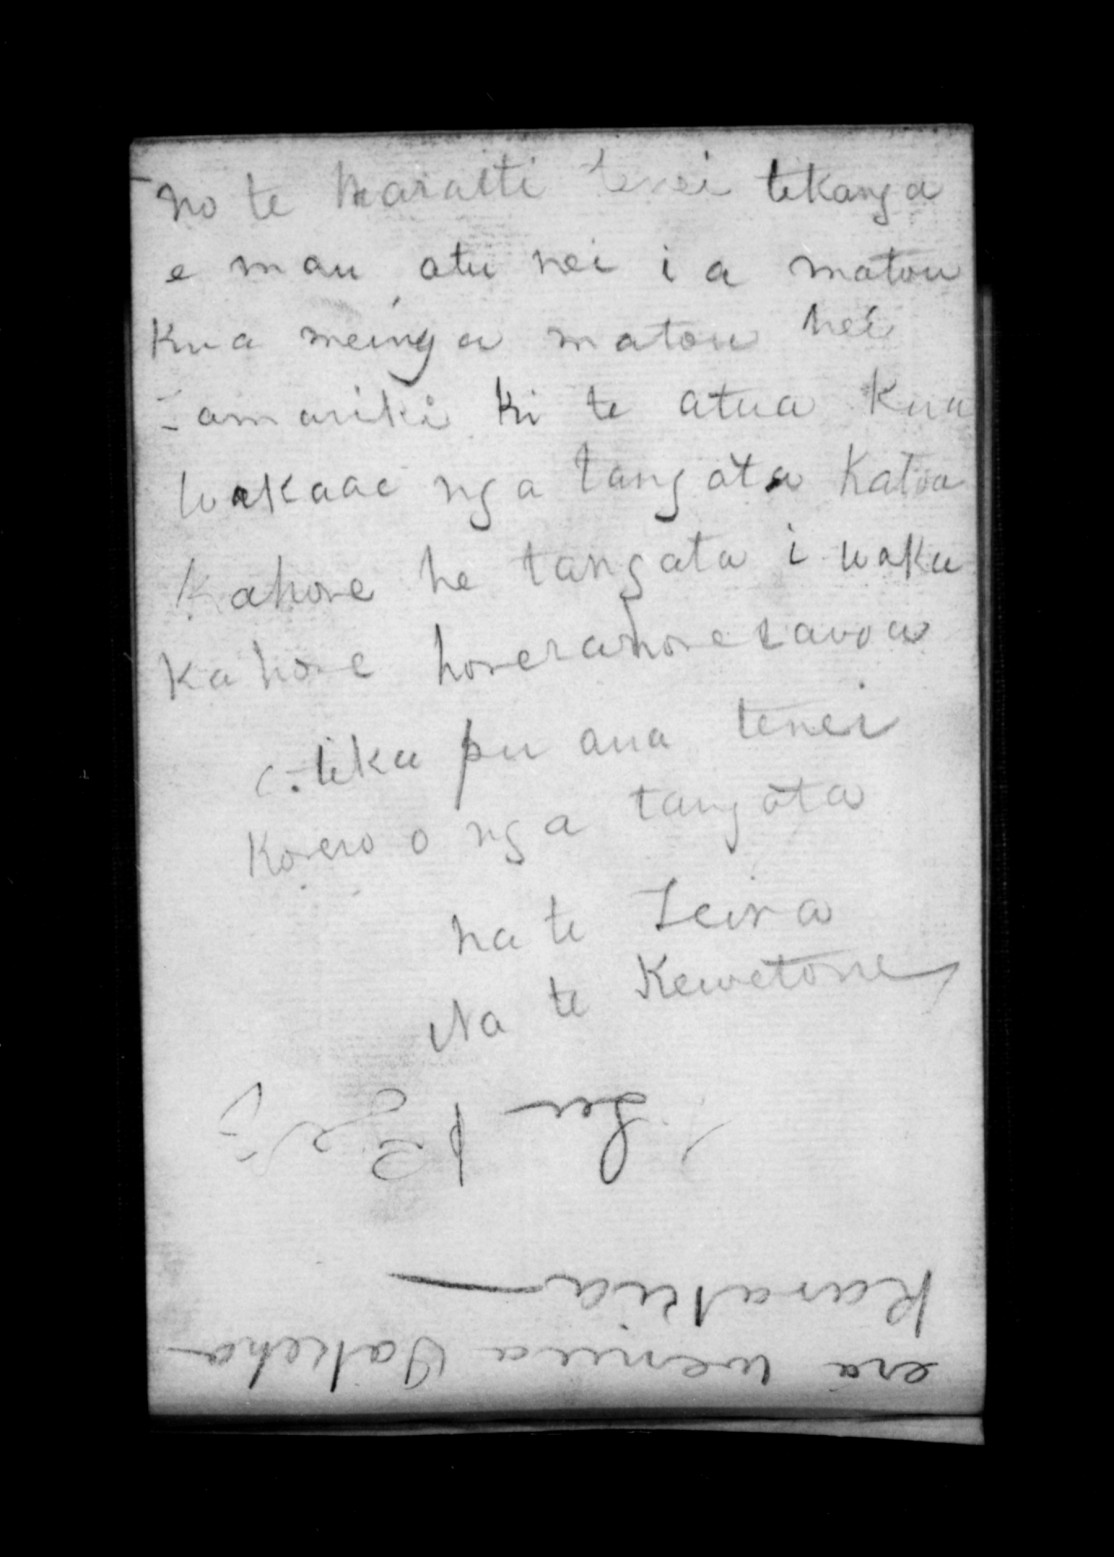 no te Maraiti tenei tekanga
e mau atu nei i a matou
Kua meinga matou hei
tamariki ki te atua Kua
wakaae nga tangata Katoa
Kahore he tangata i waka
Kahore horerahore ravoa
e tika pu ana tenei
Korero o nga tangata
na te
Na te Kewetone
era wenua Pakeha
Karakia